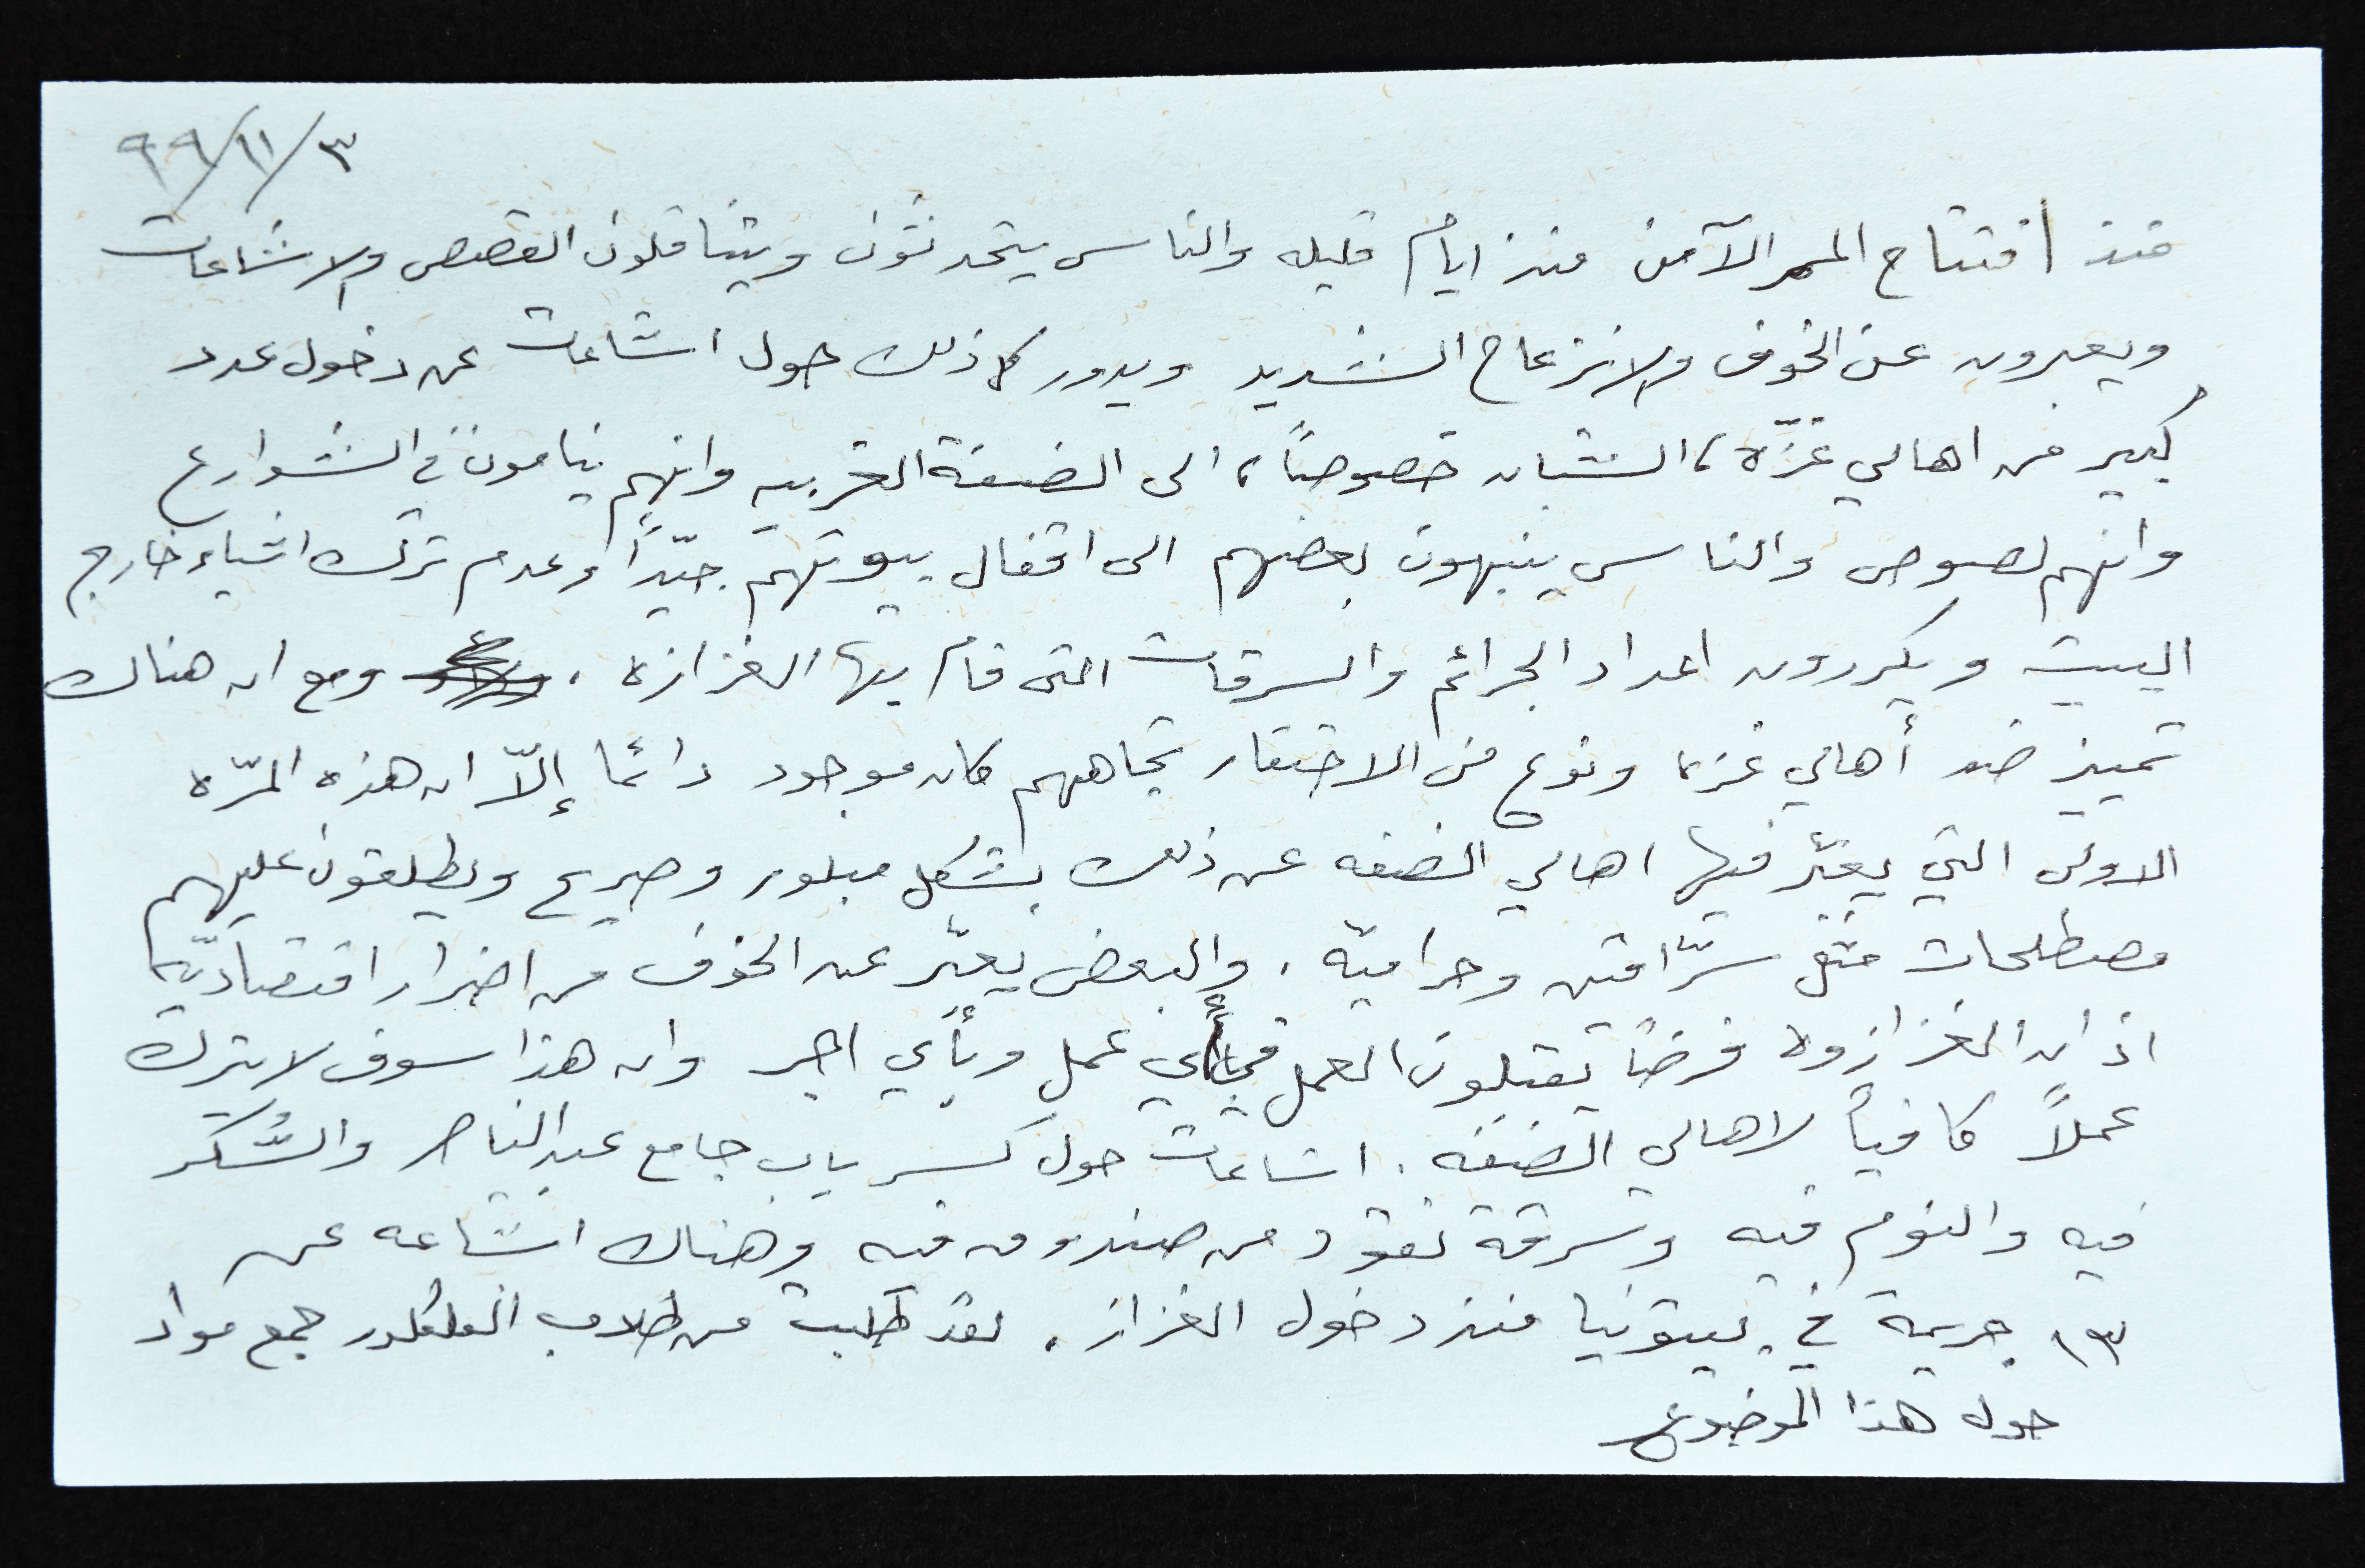 ٣/١١/٩٩
منذ افتتاح الممر الآمن منذ ايام قليله والناس يتحدثون ويتناقلون القصص والاشاعات
ويعبرون عن الخوف والانزعاج الشديد ويدور كل ذلك حول اشاعات عن دخول عدد
كبير من اهالي غزّة، الشبان خصوصاً، الى الضفة الغربيه وانهم ينامون في الشوارع
وانهم لصوص والناس ينبهون بعضهم الى اقفال بيوتهم جيّداً وعدم ترك اشياء خارج
البيت ويكررون اعداد الجرائم والسرقات التي قام بها الغزازه. ومع ان هناك
تمييز ضد أهالي غزه ونوع من الاحتقار تجاههم كان موجود دائما إلاّ ان هذه المرّه
الاولى التي يعبّر فيها اهالي الضفه عن ذلك بشكل مبلور وصريح ويطلقون عليهم
مصطلحات مثل سرّاقين وحراميّه. والبعض يعبّر عن الخوف من اضرار اقتصاديّه
اذ ان الغزازوه فرضاً يقبلون العمل في أي عمل وبأي اجر وان هذا سوف لا يترك
عملاً كافياً لاهالي الضفه. اشاعات حول كسر باب جامع عبد الناصر والسُّكر
فيه والنوم فيه وسرقة نقود من صندوق فيه وهناك اشاعه عن
١٣ جريمة في بيتونيا منذ دخول الغزاز. لقد طلبت من طلاب الفلكلور جمع مواد
حول هذا الموضوع